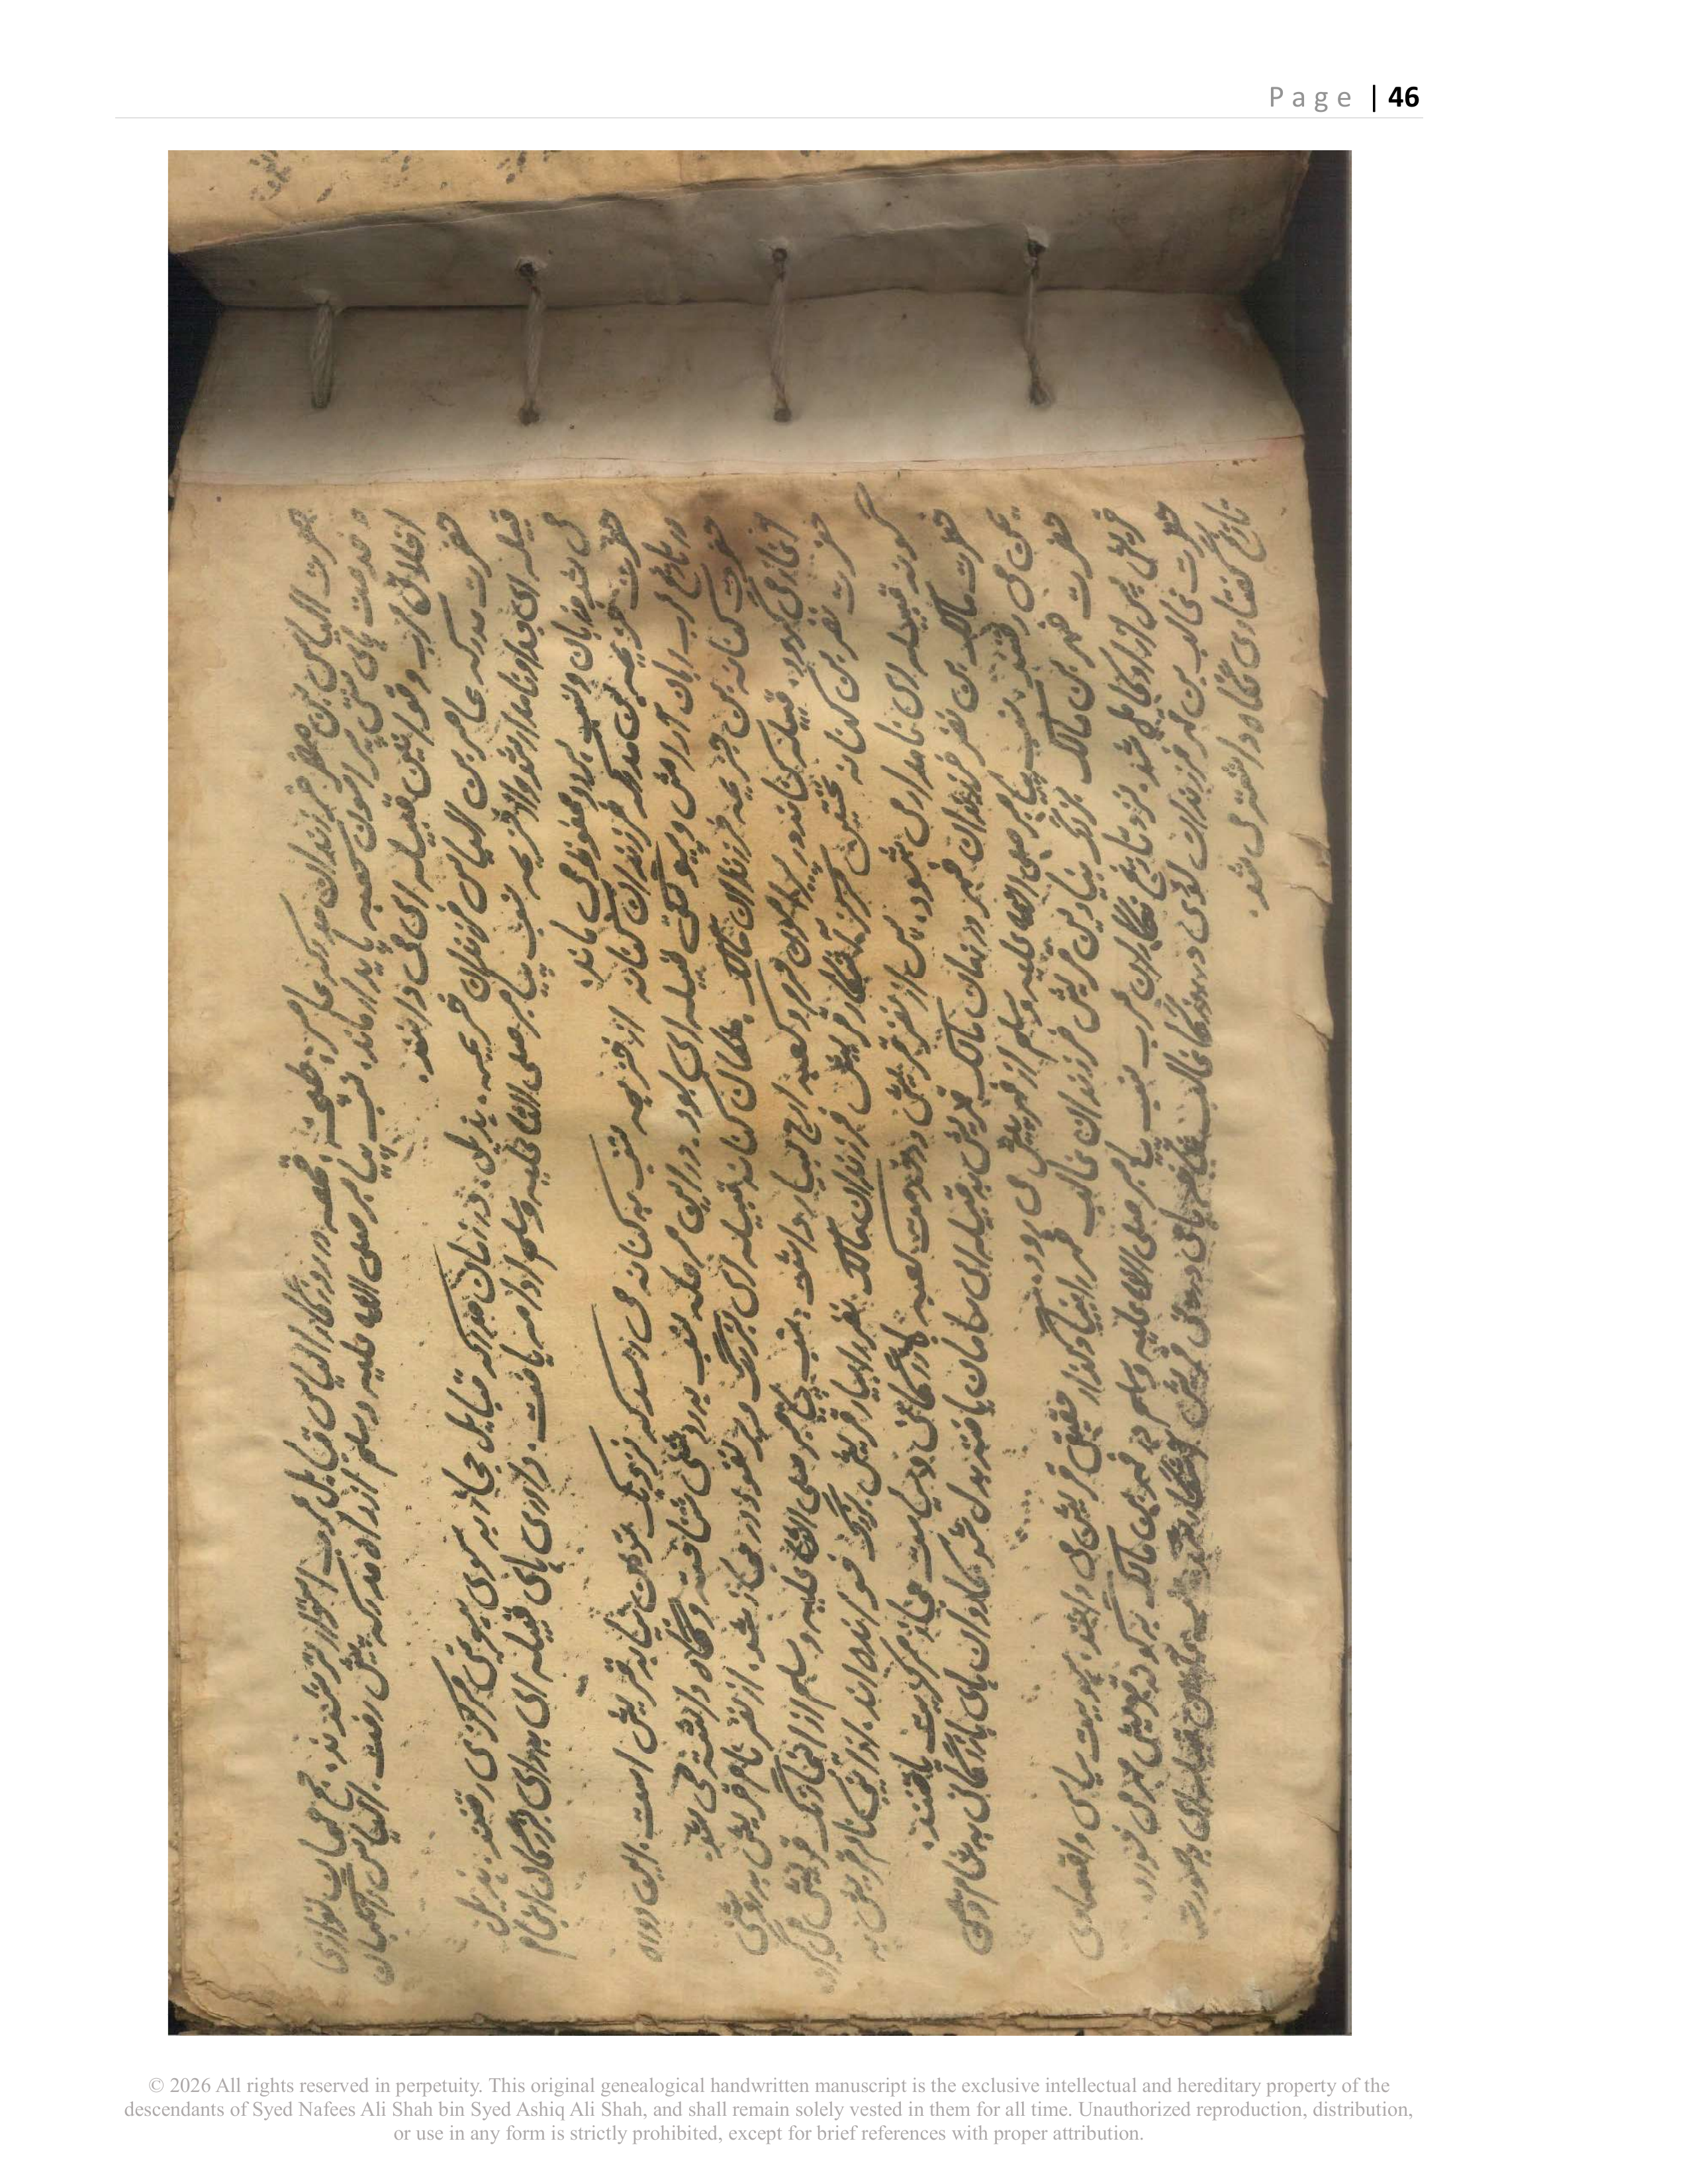 Page | 46
حضرت الیاس بن مضر فرزندان مدرکه عامر، طابخه، قمعه در روزگار الیاس قبایل عرب استوارتر شدند. حج مهمان نوازی
و خدمت های نقش پیرامون کعبه پایدار ماند. نسب پیامبر صلی الله علیه وسلم از راه مدرکه پیش رفت. الیاس نگهبان
اخلاق عرب و قوانین قبیله ای می دانند.
حضرت مدرکه عامر بن الیاس فرزندان خزیمه، هذیل. در زمان مدرکه قبایل حجاز به سوی هویتی مرکزی رفتند. هذیل
قبیله ای نامدار شد و از خزیمه نسب پیامبر صلی الله علیه وسلم ادامه یافت. داوری های قبیله ای برای بزرگان انجام
می شد و زبان و نسب محفوظ می ماند.
حضرت خزیمه بن مدرکه فرزندان کنانه از خزیمه نسب به کنانه می رسد که نزدیک ترین بنیاد قریش است. این دوره
در تاریخ عرب زمان آرامش و پیوستگی قبیله ای بود. در این مرحله نسب به روشنی شناخته و نگاه داشته می شد.
حضرت کنانه بن خزیمه فرزندان مالک، ملکان کنانه قبیله ای بزرگ و پر نفوذ در حجاز شد. از نضر نام قریش به روشنی
آغاز می گردد. قبیله کنانه در پیرامون حرم و کعبه ارج بسیار داشت. نسب پیامبر صلی الله علیه وسلم از اینجا رنگ قریشی می گیرد
حضرت نضر بن کنانه نخستین آشکار قریش فرزندان مالک. نضر را بسیار قریش بزرگ خوانده اند. از اینجا نام قریش به
گونه قبیله ای نامداری شود. پس از نضر قریش در خدمت کعبه بازرگانی و سیاست حجاز مرکزیت یافتند.
حضرت مالک بن نضر فرزندان فهر در زمان مالک قریش به قبیله ای سامان یافته بدل شد کاروان های بازرگانی به شام و یمن
یمن می رفتند. نسب پیامبر صلی الله علیه وسلم از فهر پیش می رود.
حضرت فهر بن مالک بزرگ بنیادین قریش فرزندان غالب فهر را بنیادگذار حقیقی قریش می دانند. هویت سیاسی و اقتصادی
قریش پس از او کامل شد. نزد تاریخ نگاران عرب نسب پیامبر صلی الله علیه وسلم در فهر بن مالک به گونه قریش مهر می خورد.
حضرت غالب بن فهر فرزندان لؤی در روزگار غالب
تاریخ گفتاری نگاه داشته می شد.
© 2026 All rights reserved in perpetuity. This original genealogical handwritten manuscript is the exclusive intellectual and hereditary property of the
descendants of Syed Nafees Ali Shah bin Syed Ashiq Ali Shah, and shall remain solely vested in them for all time. Unauthorized reproduction, distribution,
or use in any form is strictly prohibited, except for brief references with proper attribution.